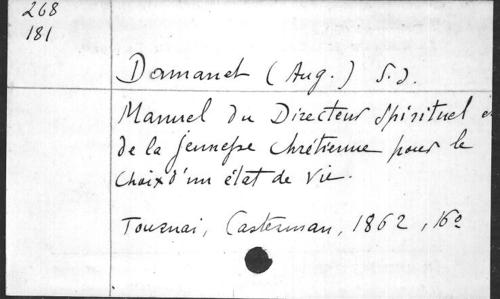 268
181
Damanet (Aug.) S.J.
Manuel du Directeur Spirituel
de la Jeunesse Chrétienne pour le
Choix d'un état de vie.
Tournai, Casterman, 1862, 16o